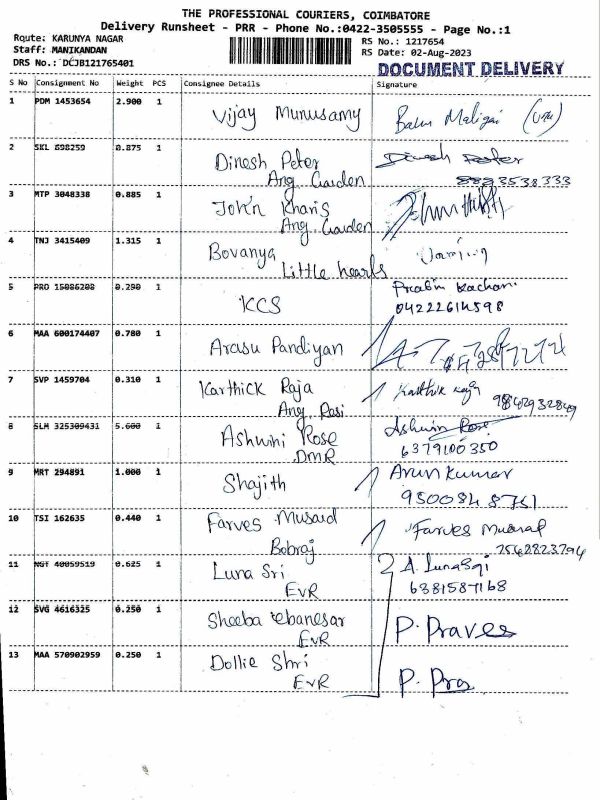 THE PROFESSIONAL COURIERS, COIMBATORE
Delivery Runsheet - PRR - Phone No.:0422-3505555 - Page No.:1
Route: KARUNYA NAGAR
RS No.: 1217654
Staff: MANIKANDAN
RS Date: 02-Aug-2023
DRS No.: DCJB121765401
DOCUMENT DELIVERY
S No Consignment No Weight PCS Consignee Details Signature
1 PDM 1453654 2.900 1 Vijay Munusamy
2 SKL 698259 0.875 1 Dinesh Peter
Ang Garden
8883538333
3 MTP 3048338 0.885 1 John Kharis
Ang. Garden
4 TNJ 3415409 1.315 1 Bovanya
Little hearts
5 PRO 15086208 0.290 1 KCS Prabin Kachari
04222614598
6 MAA 600174407 0.780 1 Arasu Pandiyan
7 SVP 1459704 0.310 1 Karthick Raja Karthik raja
Ang. Rasi 9842932849
8 SLM 325309431 5.600 1 Ashwini Rose Ashwin Rose
DMR 6379100350
9 MRT 294891 1.000 1 Shajith Arun Kumar
10 TSI 162635 0.440 1 Farves Musaid Farves
Bobraj 7542823794
11 NGT 40059519 0.625 1 Luna Sri A.
EvR 6381587168
12 SVG 4616325 0.250 1 Sheeba ebanesar P. Praves
EvR
13 MAA 570902959 0.250 1 Dollie Shri P. Pra
EvR